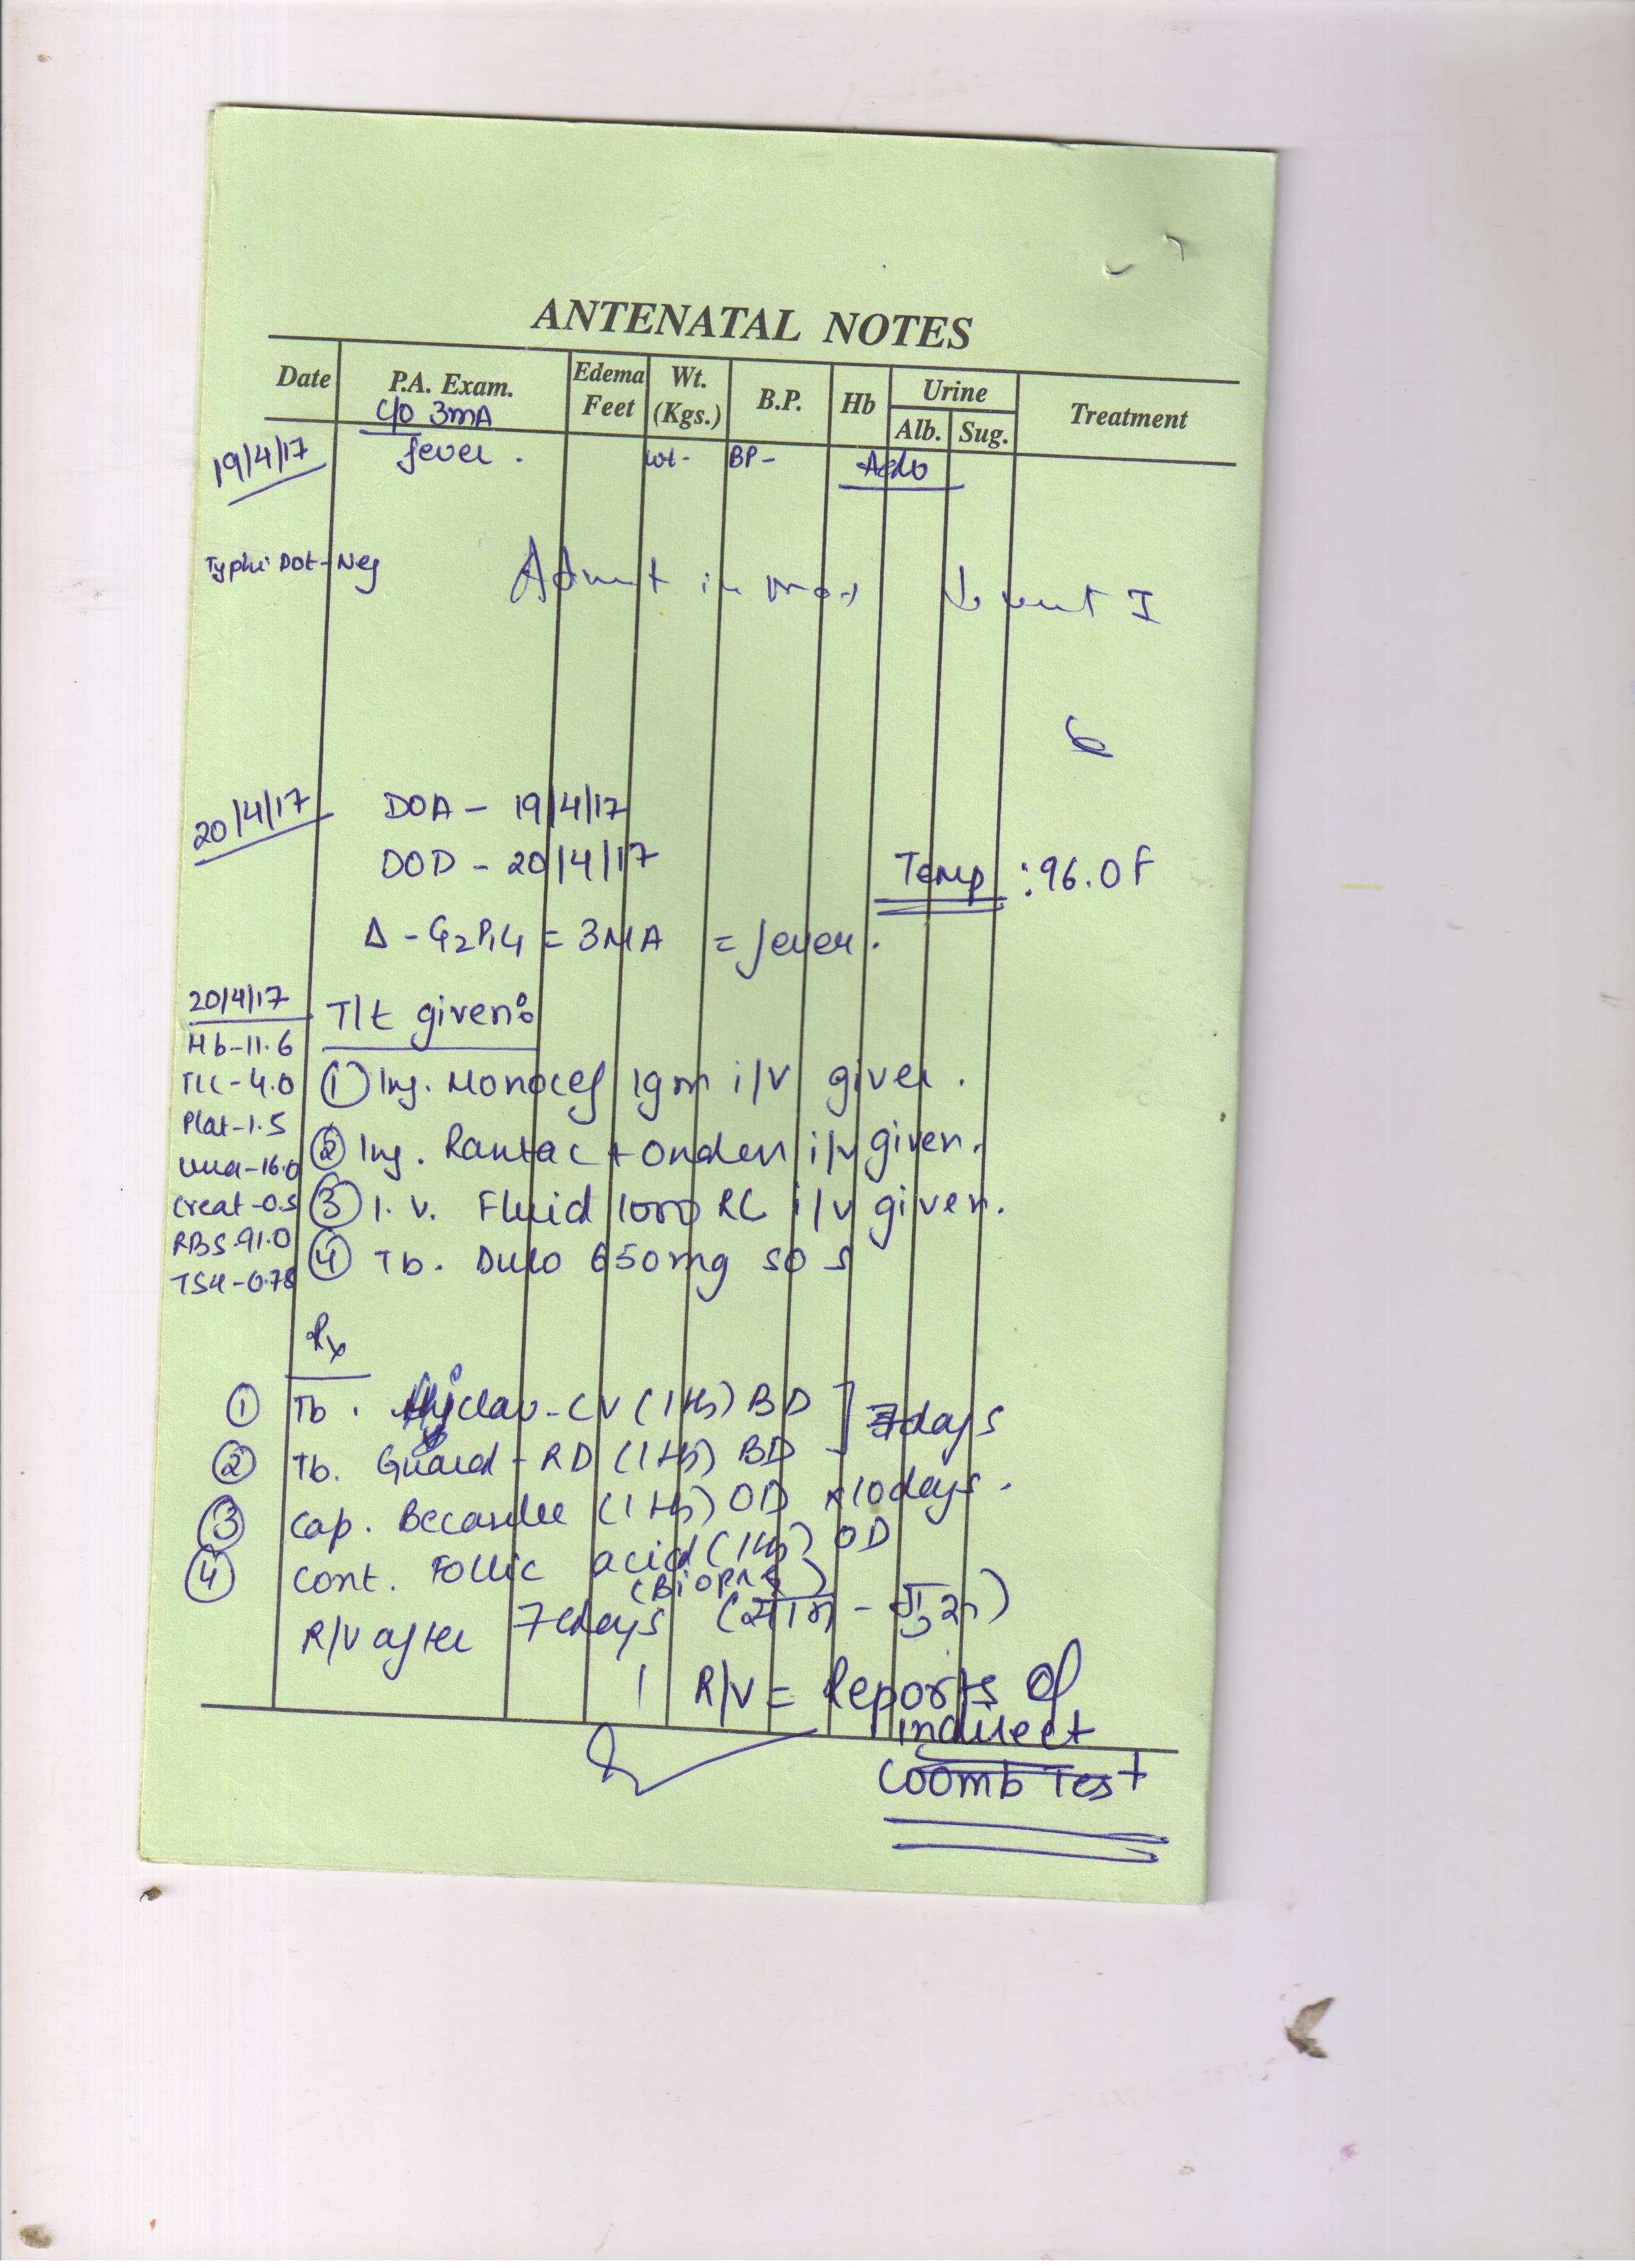 ANTENATAL NOTES
Date P.A. Exam. Edema Feet Wt. (Kgs.) B.P. Hb Urine Alb. Sug. Treatment
C/o 3mA
19/4/17 fever. wt- BP-
Typhi Dot-Neg Admit in
20/4/17 DOA - 19/4/17
DOD - 20/4/17 Temp : 96.0 F
Δ - G2P1L1 = 3MA = fever.
20/4/17 T/t given:
Hb-11.6
TLC-4.0 ① Inj. Monocef 1gm i/v given.
Plat-1.5
② Inj. Rantac + Onden i/v given.
Urea-16.0
Creat-0.5 ③ I.V. Fluid 1000 RL i/v given.
RBS-91.0
④ Tb. Dolo 650mg SOS
TSH-0.78
Rx
① Tb. clav-CV (1 tb) BD ] 7days
② Tb. Guard-RD (1 tb) BD
③ Cap. (1 tb) OD x 10days.
④ Cont. Follic acid (1 tb) OD
R/V after 7days
R/V = Reports of
indirect
Coomb Test